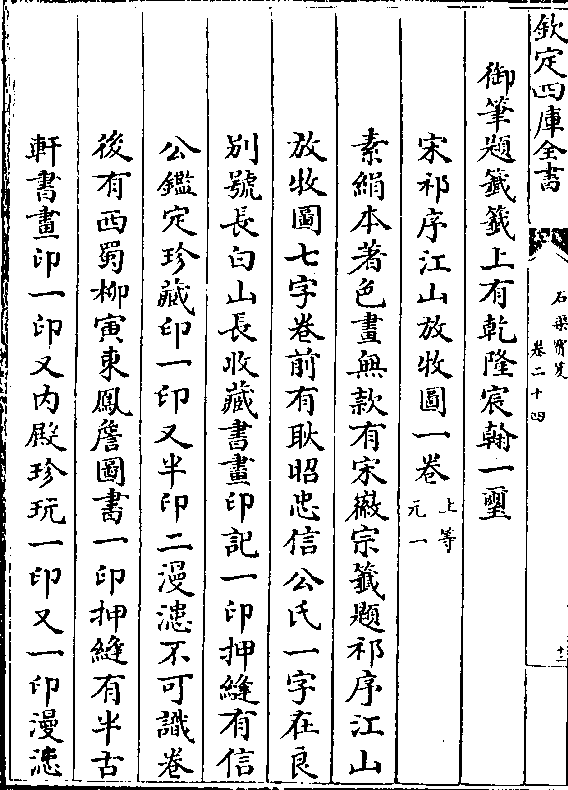 欽定四庫全書
石渠寶笈
卷二十四
十三
御筆題籤籤上有乾隆宸翰一璽
宋祁序江山放牧圖一卷
上等
元一
素絹本著色畫無款有宋徽宗籤題祁序江山
放牧圖七字卷前有耿昭忠信公氏一字在良
别號長白山長收藏書畫印記一印押縫有信
公鑑定珍藏印一印又半印二漫漶不可識卷
後有西蜀柳寅東鳳詹圖書一印押縫有半古
軒書畫印一印又内殿珍玩一印又一印漫漶